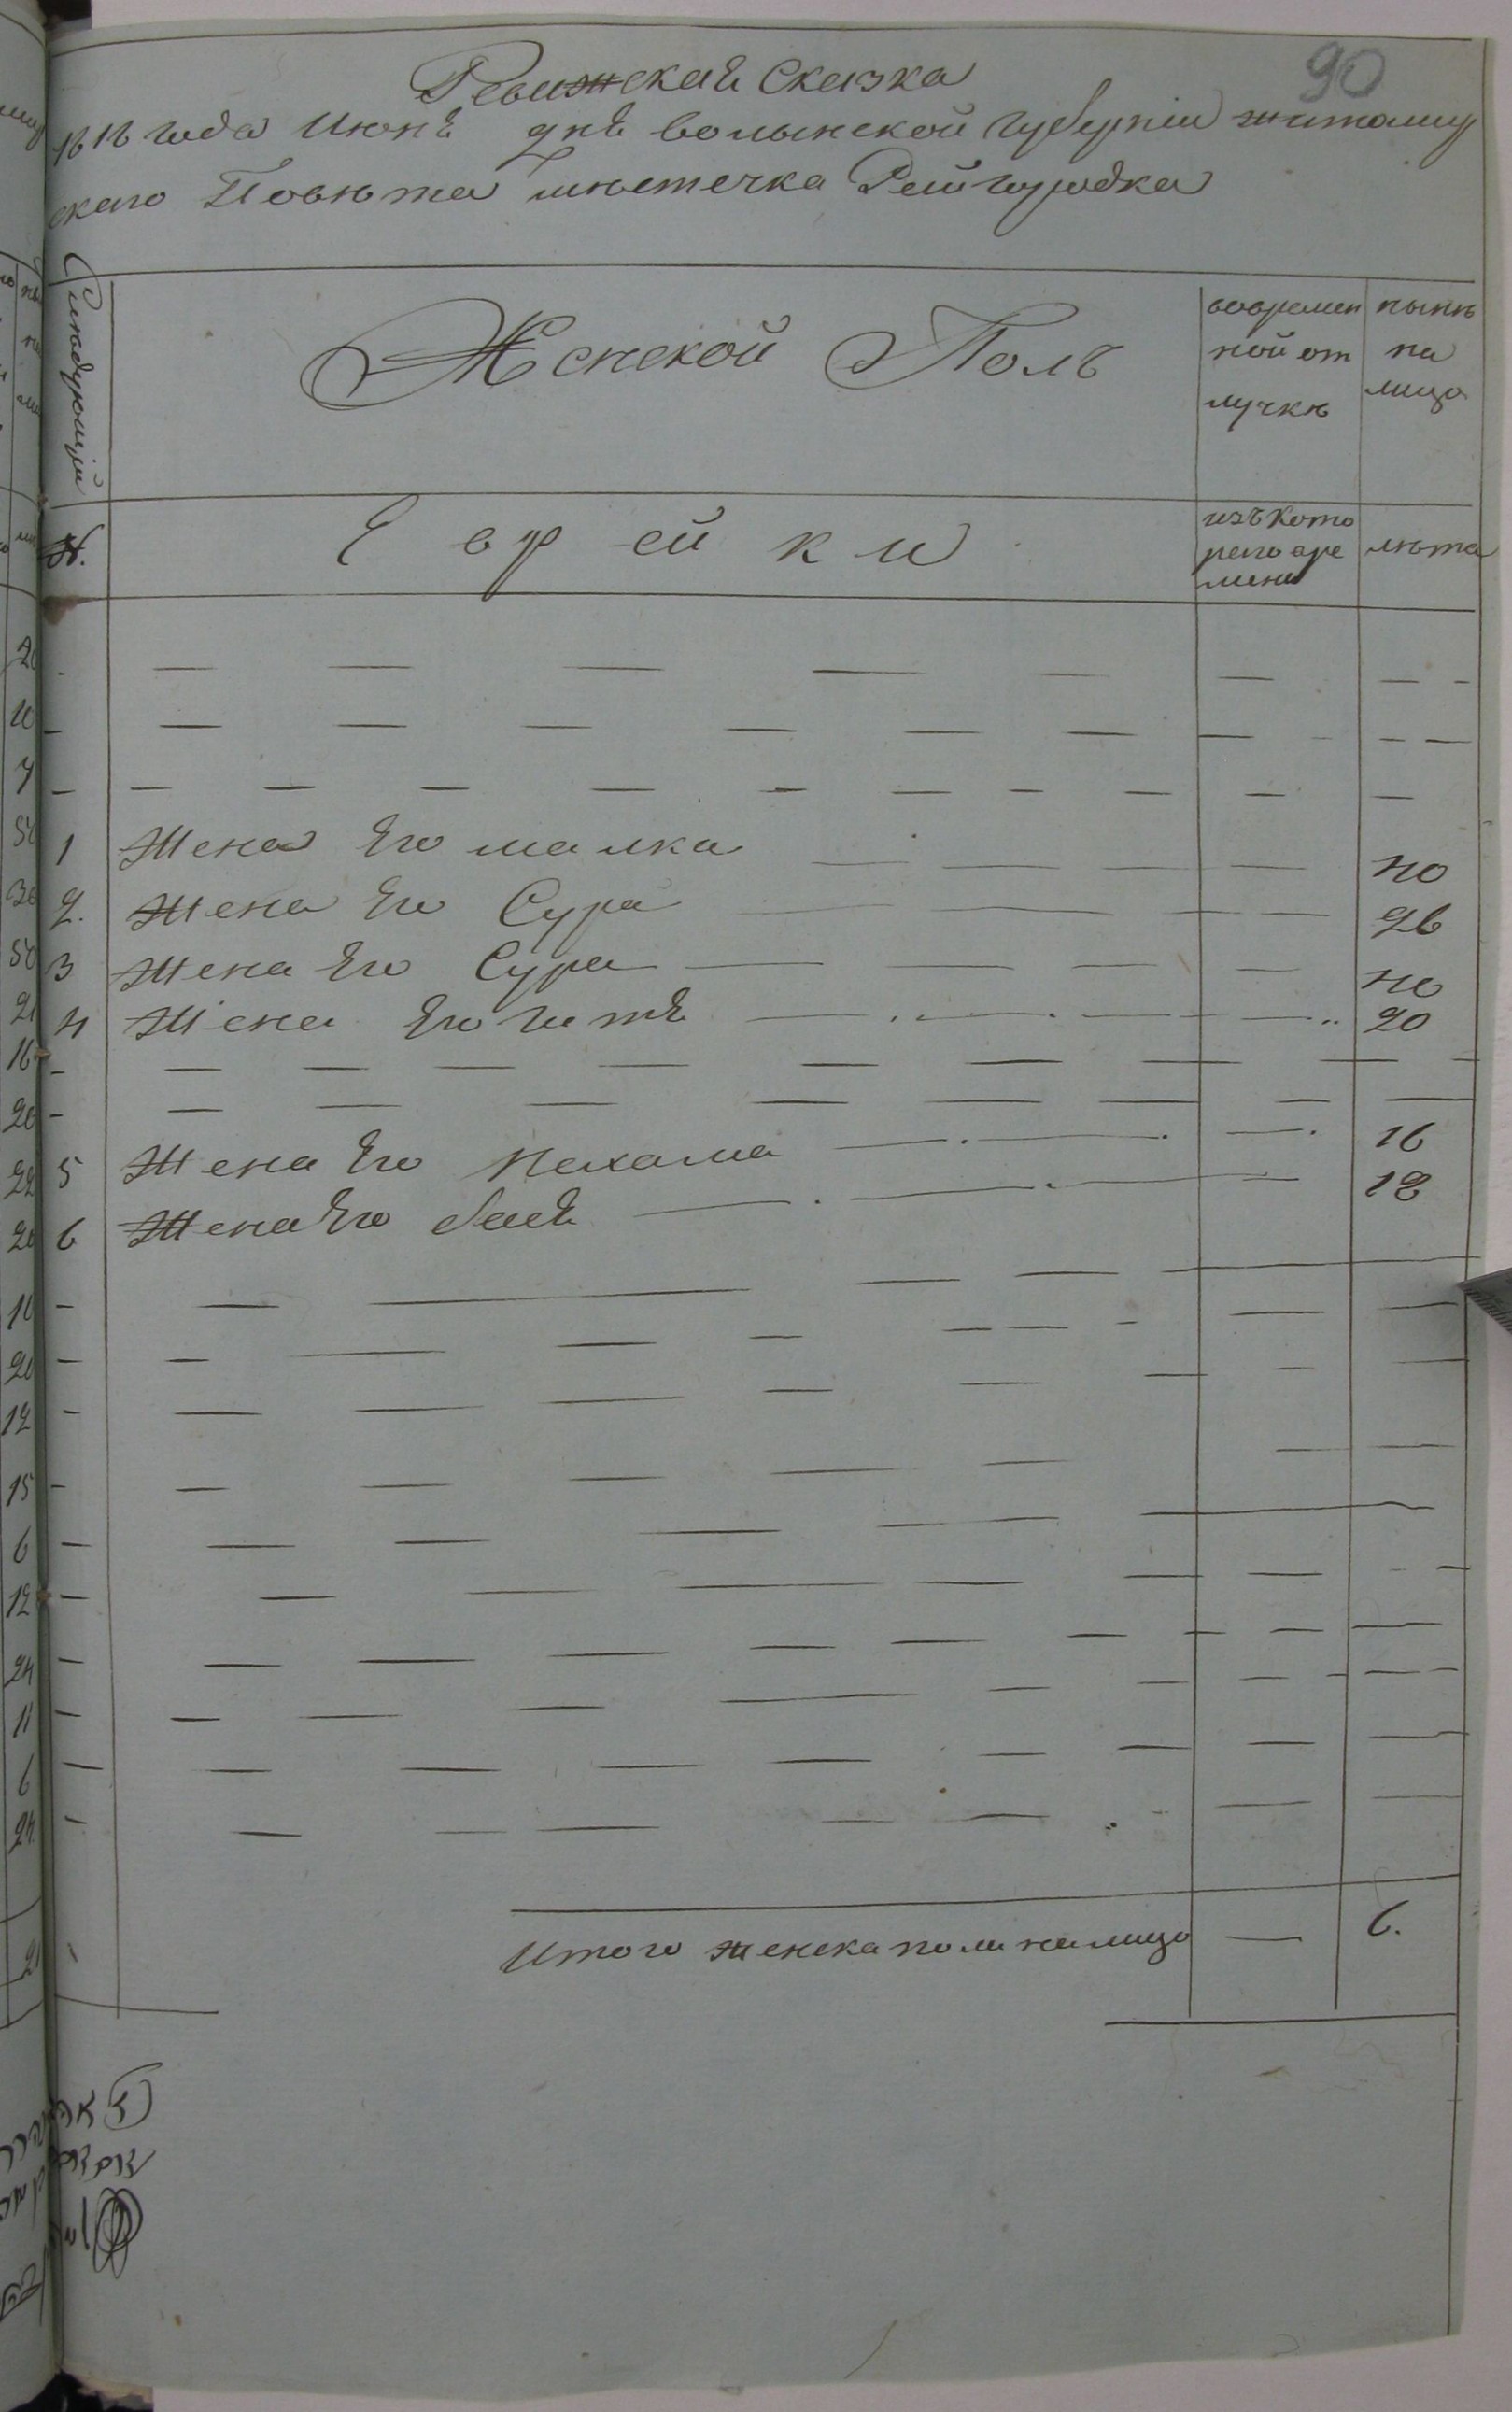 90
Ревижская Сказка
1818 года Июня дня волынской губерніи житомир
скаго Повѣта мѣстечка Райгородка
Слѣдующій
Женской Полъ
вовремен
ной от
лучкѣ
нынѣ
на
лицо
№.
Еврейки
изъ кото
раго вре
мени
лѣта
1 Жена Его малка 40
2. Жена Его Сура 26
3 Жена Его Сура 40
4 Жена Его Гитя 20
5 Жена Его Нехама 16
6 Жена Его бася 18
Итого женска пола налицо 6.